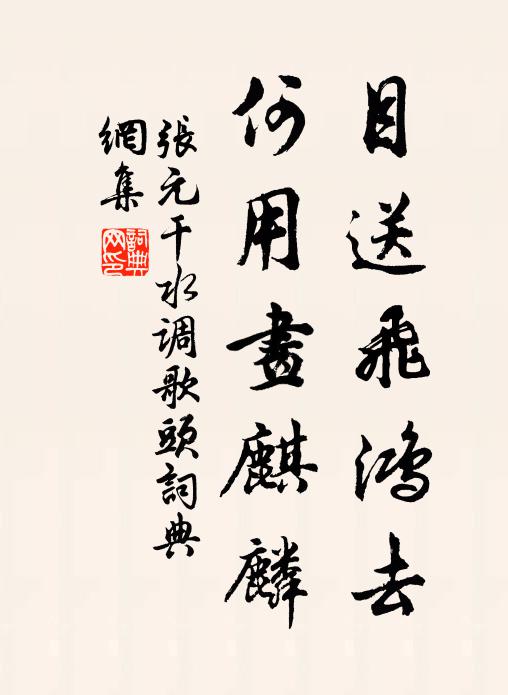 目送飛鴻去
何用畫麒麟
張元干水调歌頭詞典
網集
詞典
网印